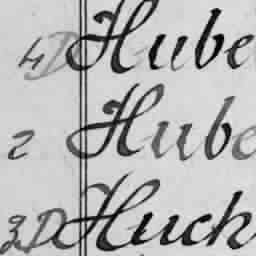 4D Hube
2 Hube
3D Huck